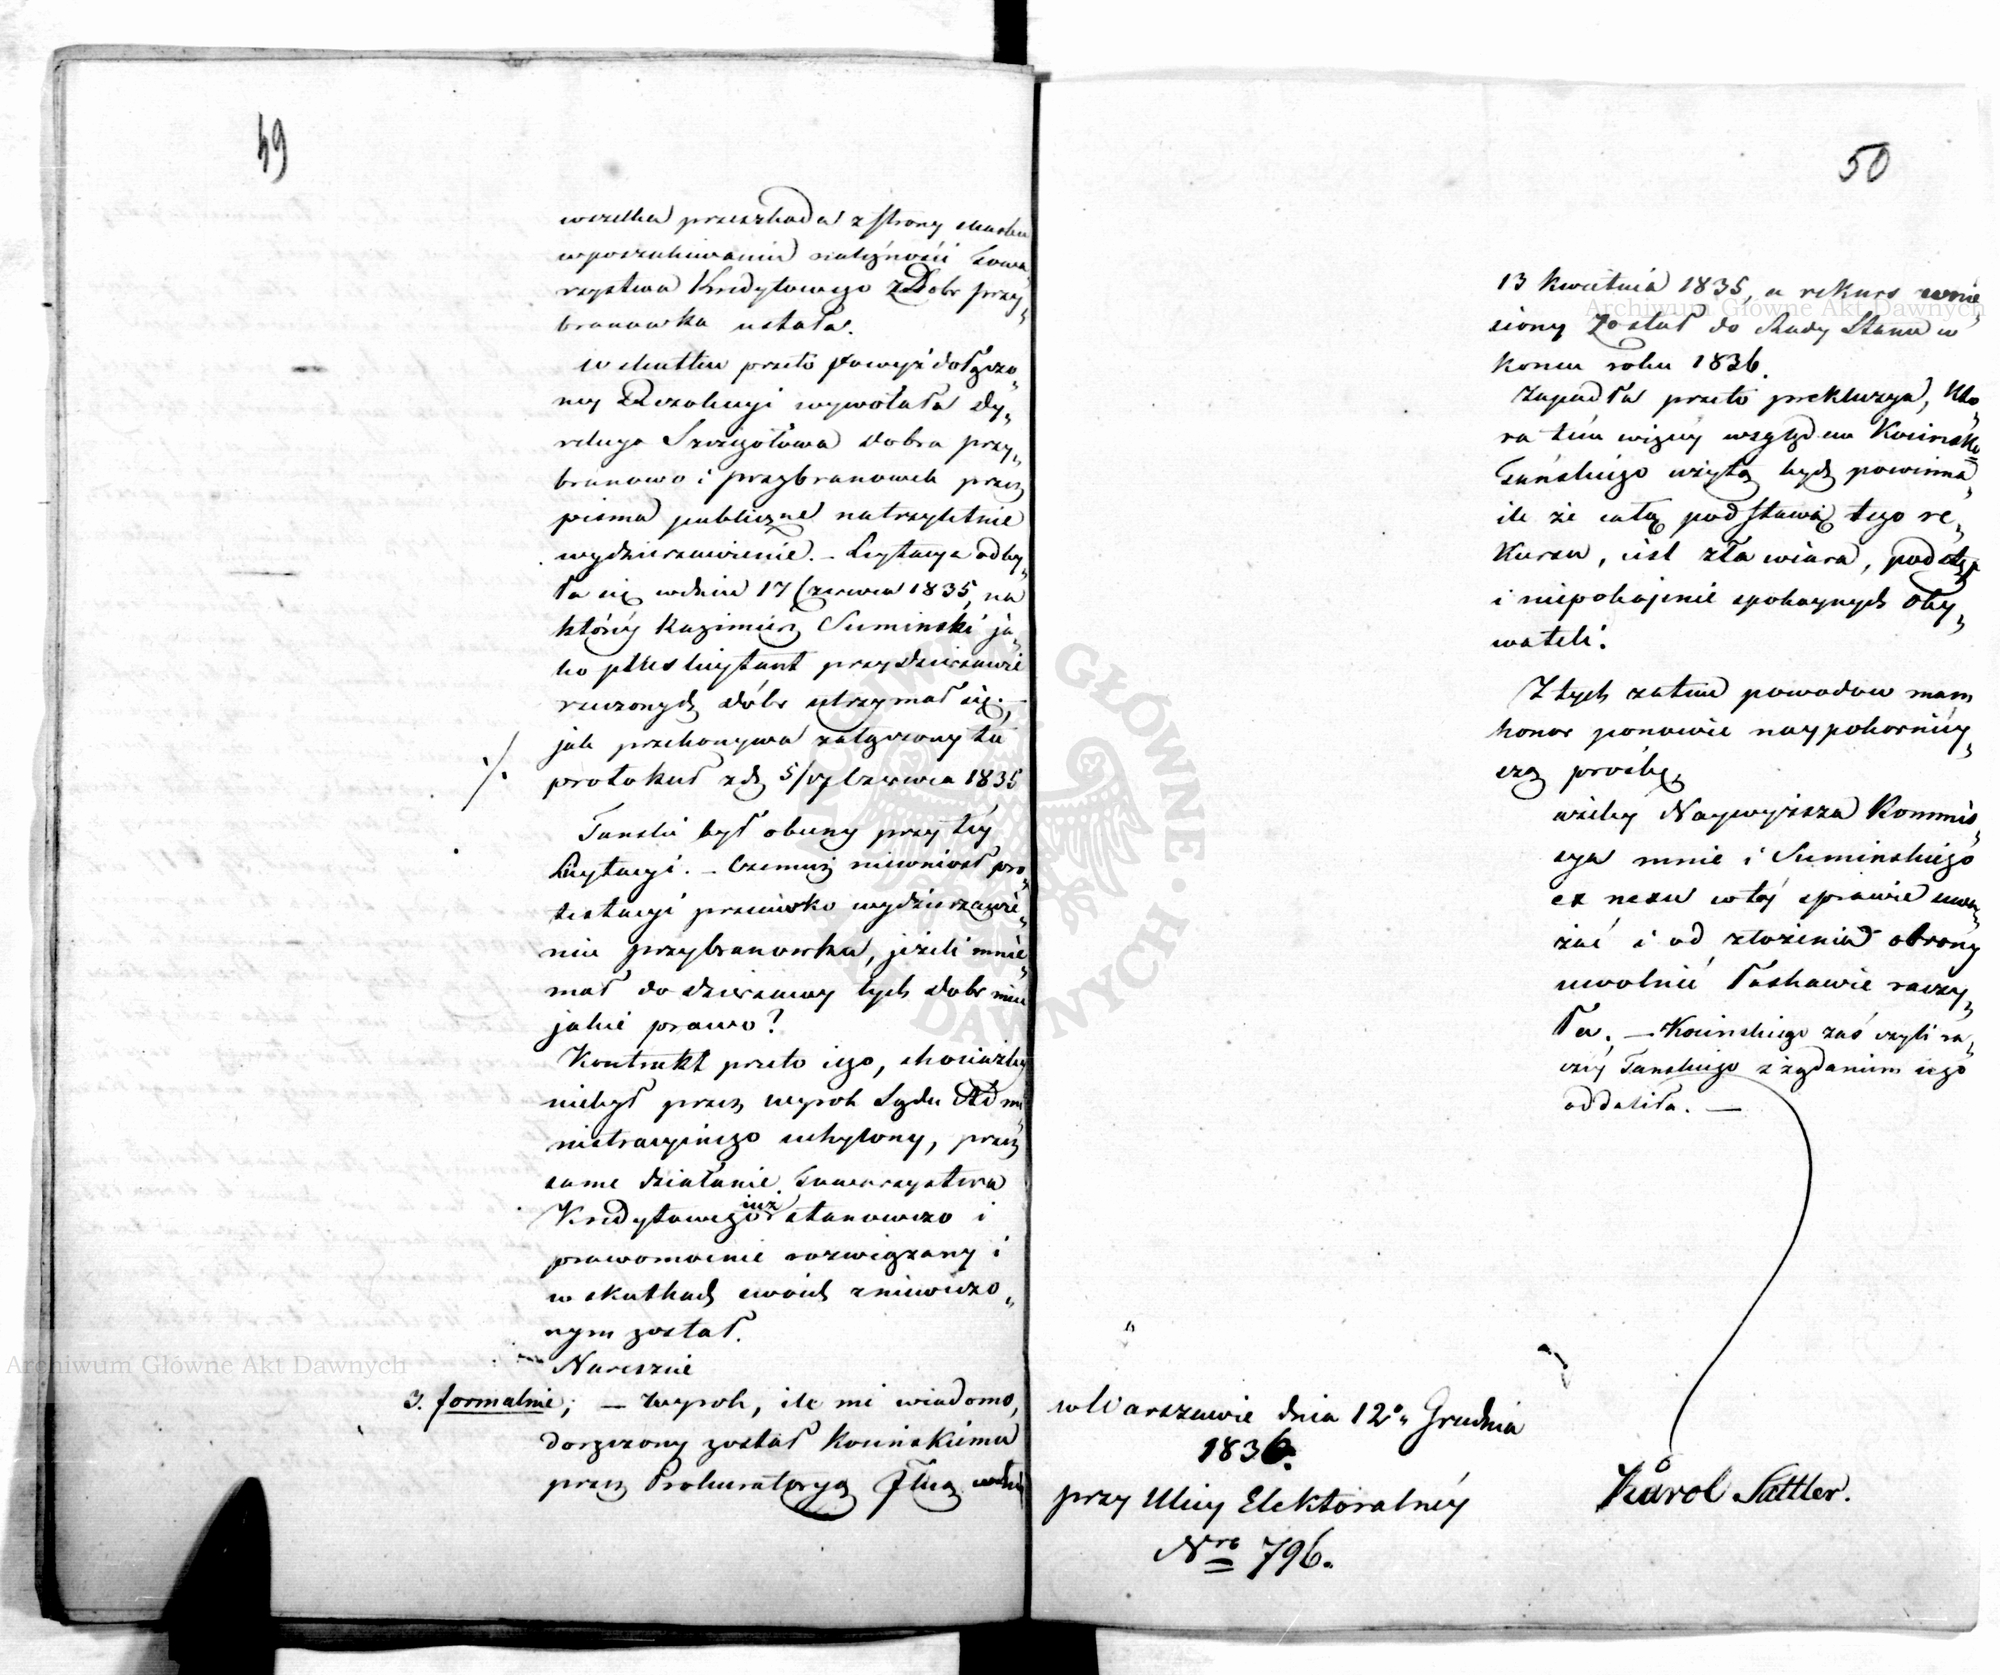 49
wszelka przeszkoda z strony skarbu
w poszukiwaniu należności Towa„
rzystwa Kredytowego z Dobr przy„
branowka ustała.
W skutku przeto powyż dołączo„
ney Rezolucyi wywołała Dy„
rekcya Szczegółowa dobra przy„
branowo i przybranowek przez
pisma publiczne na trzyletnie
wydzierzawienie. – Licytacya odby„
ła się w dniu 17 Czerwca 1835, na
któréy Kazimierz Suminski ja„
ko plus licytant przy dzierzawie
rzeczonych dóbr utrzymał się; –
jak przekonywa załączony tu
protokuł z d. 5/17 Czerwca 1835
Tanski był obecny przy téy
Licytacyi. – Czemuż niewniosł pro„
testacyi przeciwko wydzierzawie„
niu przybranowka, jeżeli mnie„
mał do dzierzawy tych dobr mieć
jakie prawo?
Kontrakt przeto iego, chociażby
niebył przez wyrok Sądu Admi„
nistracyinego uchylony, przez
same działanie Towarzystwa
Kredytowego iuż stanowczo i
prawomocnie rozwiązany i
w skutkach swoich zniweczo„
nym został.
Nareszcie
3. formalnie; – Wyrok, ile mi wiadomo,
doręczony został Kocinskiemu
przez Prokuratoryą Jlną w dniu
50
13 Kwietnia 1835, a rekurs wnie„
siony został do Rady Stanu w
koncu roku 1836.
Zapadła przeto prekluzya, któ„
ra tém więcéy względem Kocinsko
Tańskiego użytą bydź powinna„
ile że całą podstawą tego re„
kursu, iest zła wiara, podstęp
i niepokojenie spokoynych oby„
wateli.
Z tych zatem powodow mam
honor ponowić naypokornicy„
szą prośbę,
ażeby Naywyższa Kommis„
sya mnie i Suminskiego
ex nexu w téj sprawie uwa„
żać i od złożenia obrony
uwolnić łaskawie raczy„
ła. – Kocinskiego zaś czyli ra„
czéy Tanskiego z żądaniem iego
oddaliła. –
w Warszawie dnia 12o Grudnia
1836.
przy Ulicy Elektoralnéy
Nro 796.
Karol Sattler.
Archiwum Główne Akt Dawnych
Archiwum Główne Akt Dawnych
ARCHIWUM GŁÓWNE AKT DAWNYCH